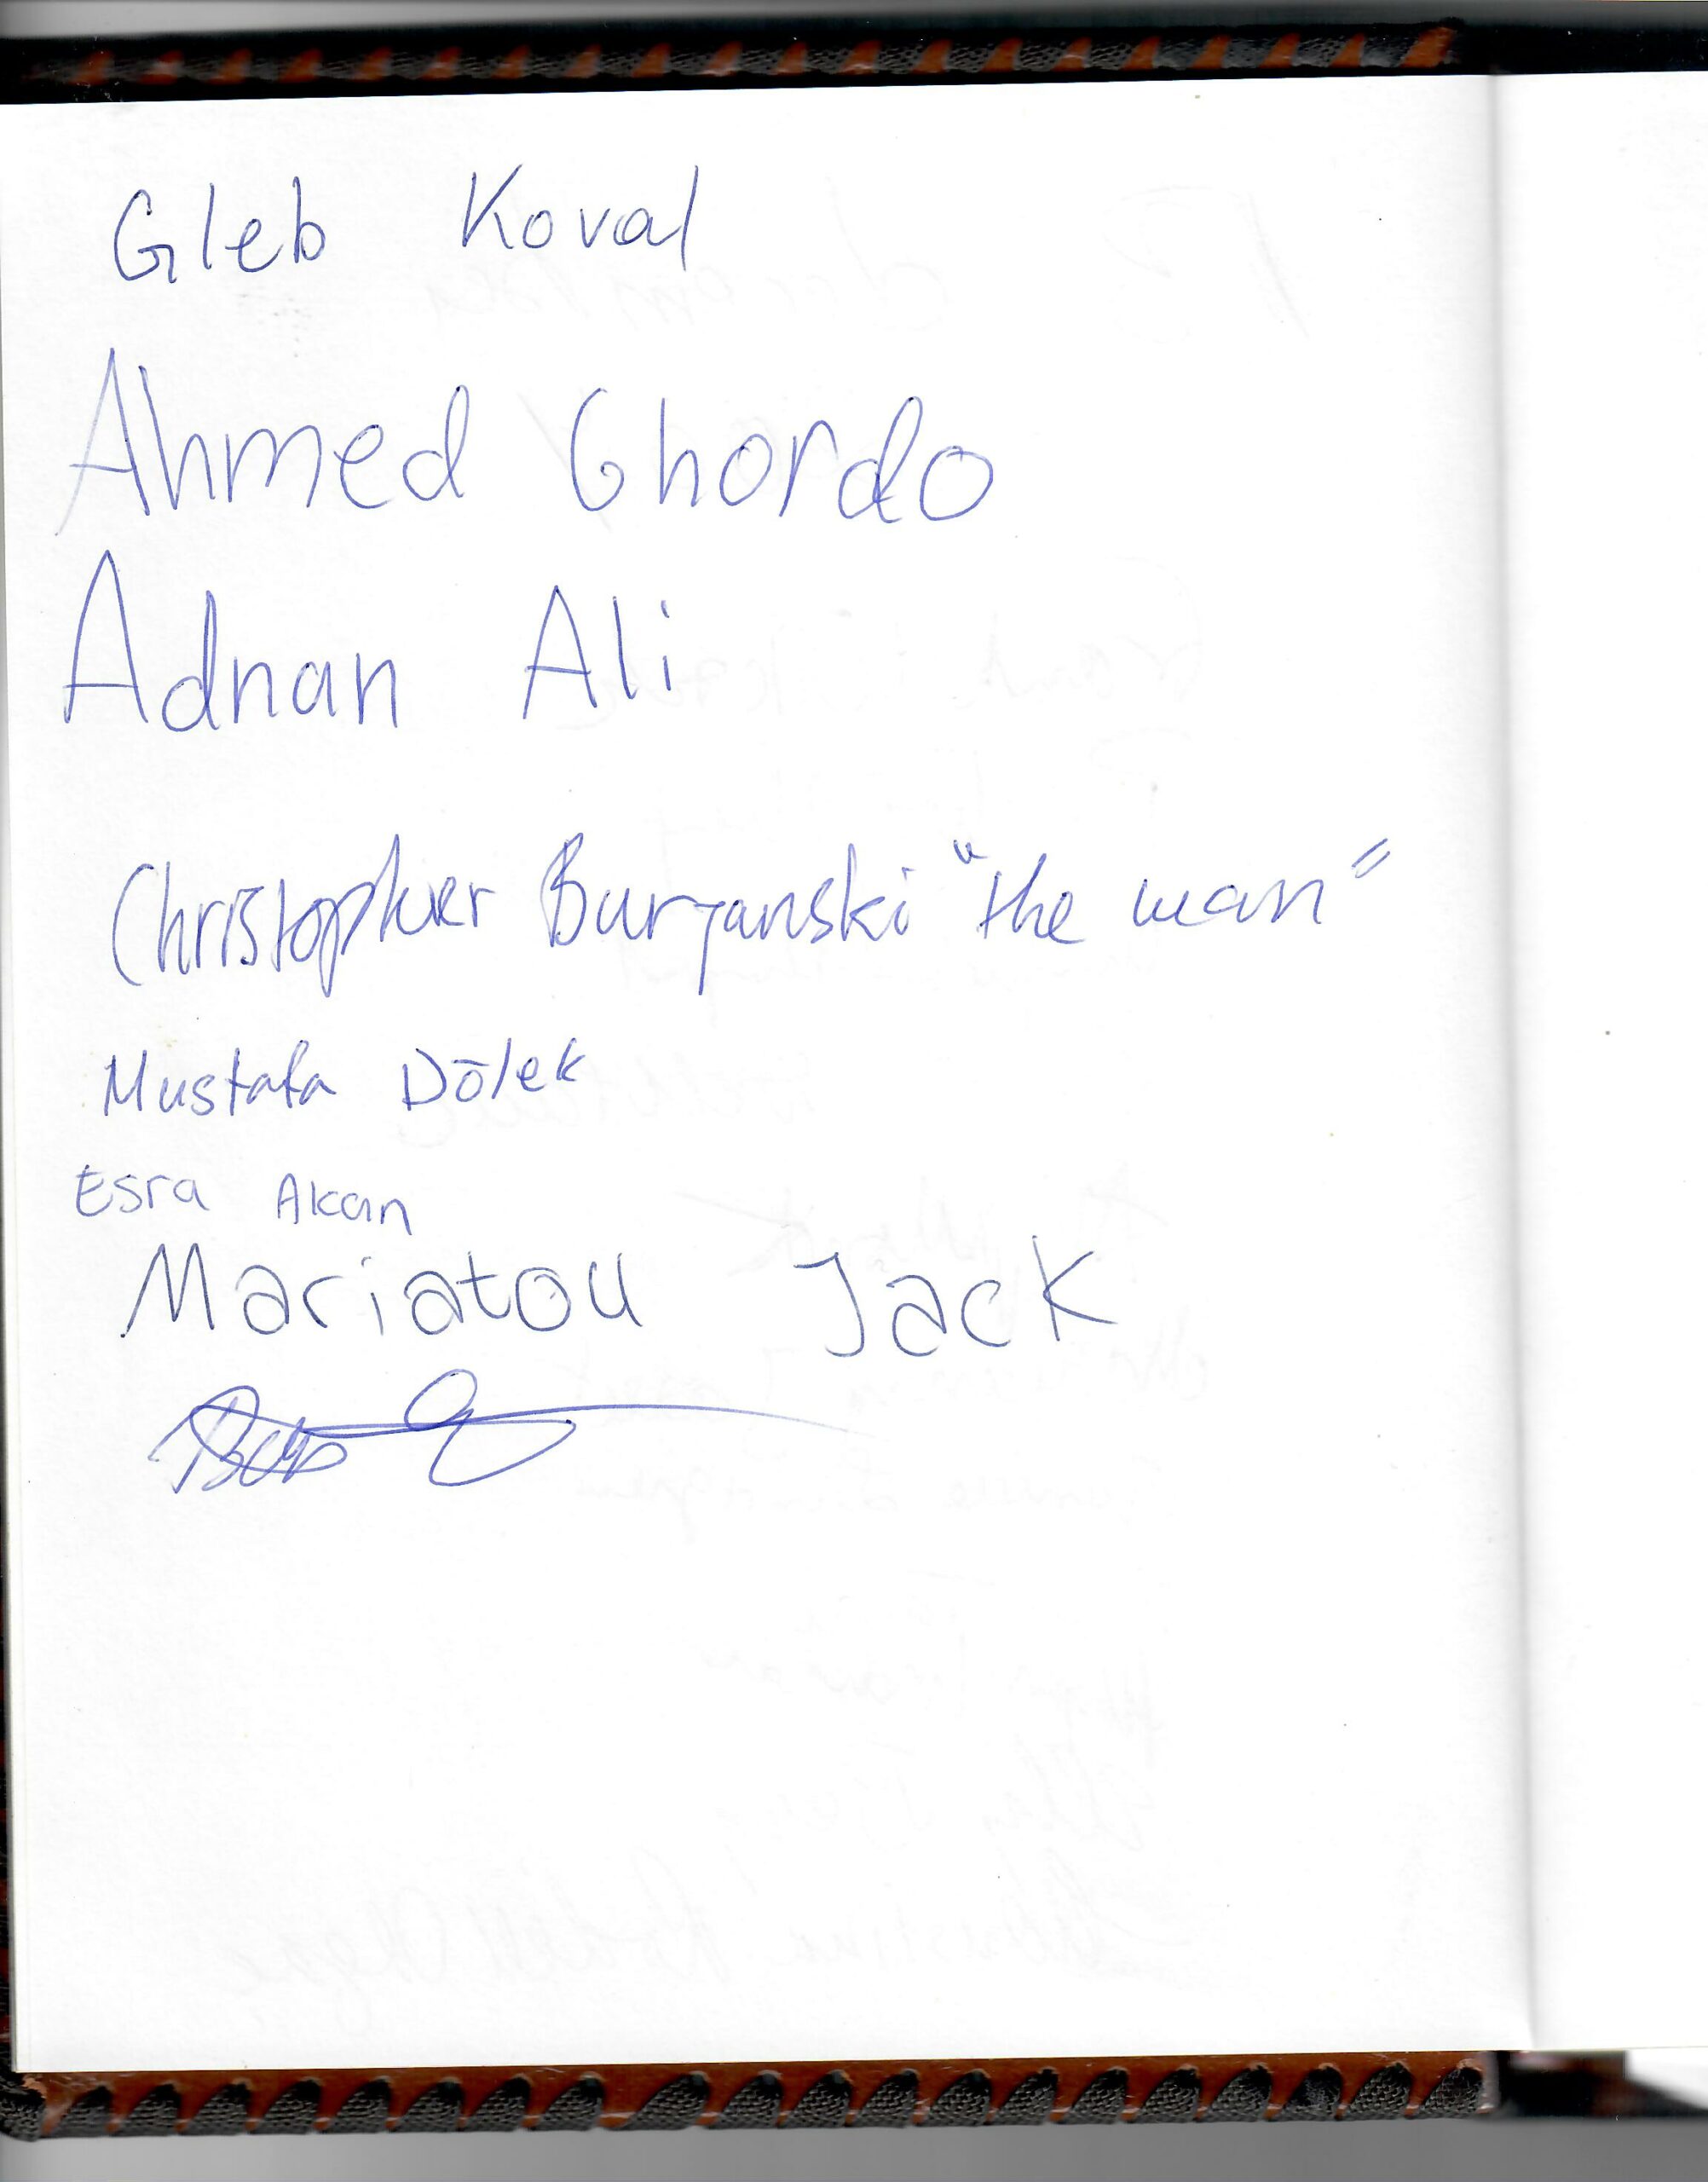 Gleb Koval
Ahmed Ghordo
Adnan Ali
Christopher Buryanski "the man"
Mustafa Dölek
Esra Akan
Mariatou Jack